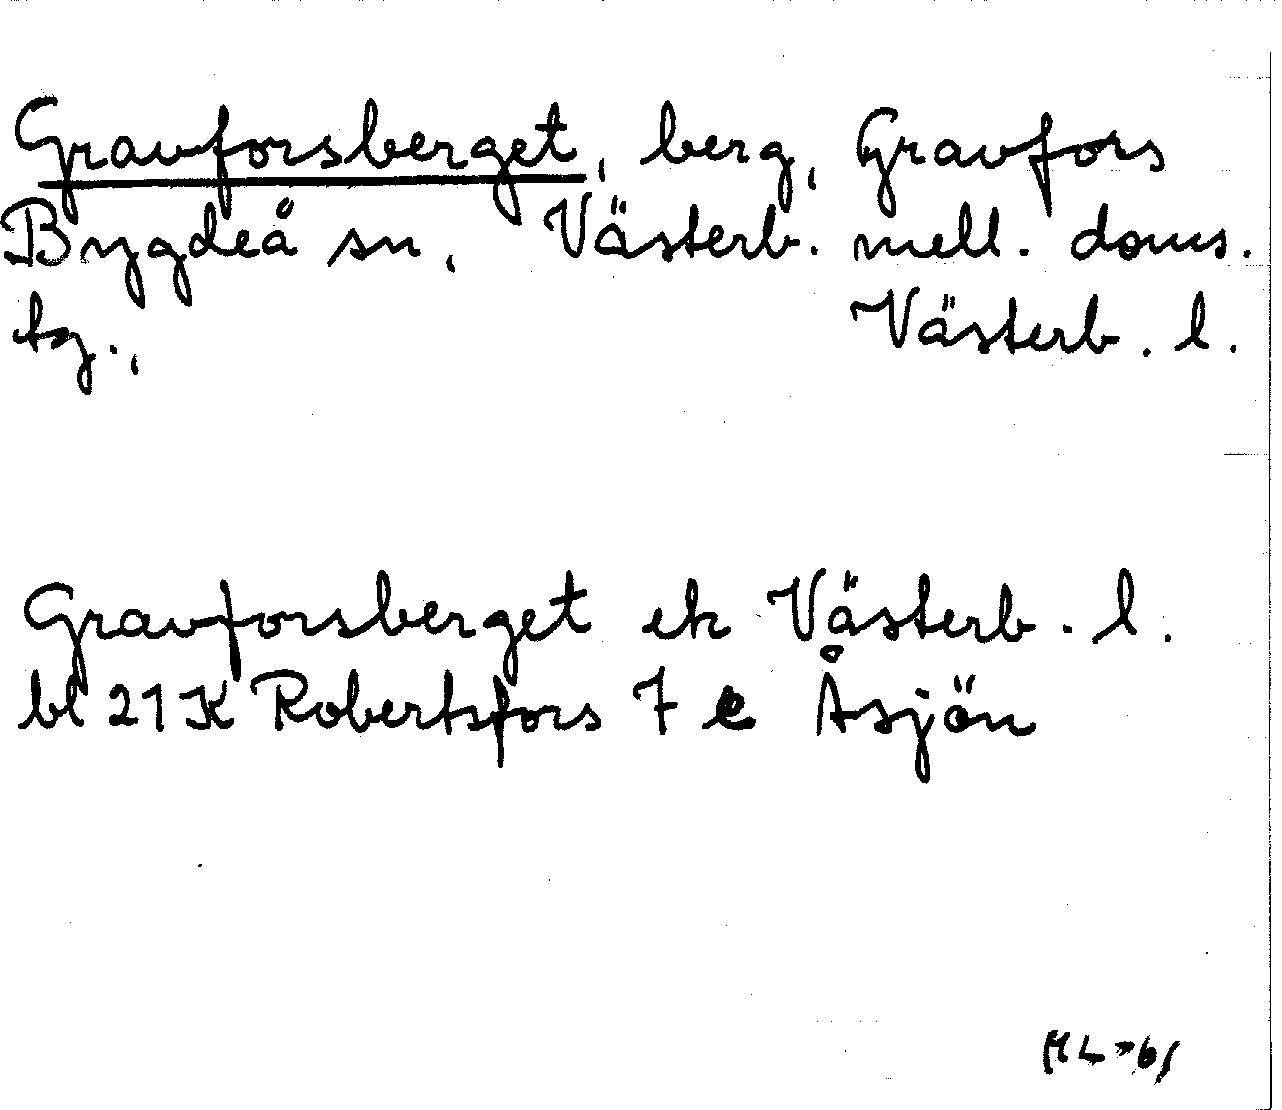 Gravforsberget, berg, Gravfors
Bygdeå sn, Västerb. mell. doms.
tg., Västerb. l.
Gravforsberget ek Västerb. l.
bl 21 K Robertsfors 7 e Åsjön